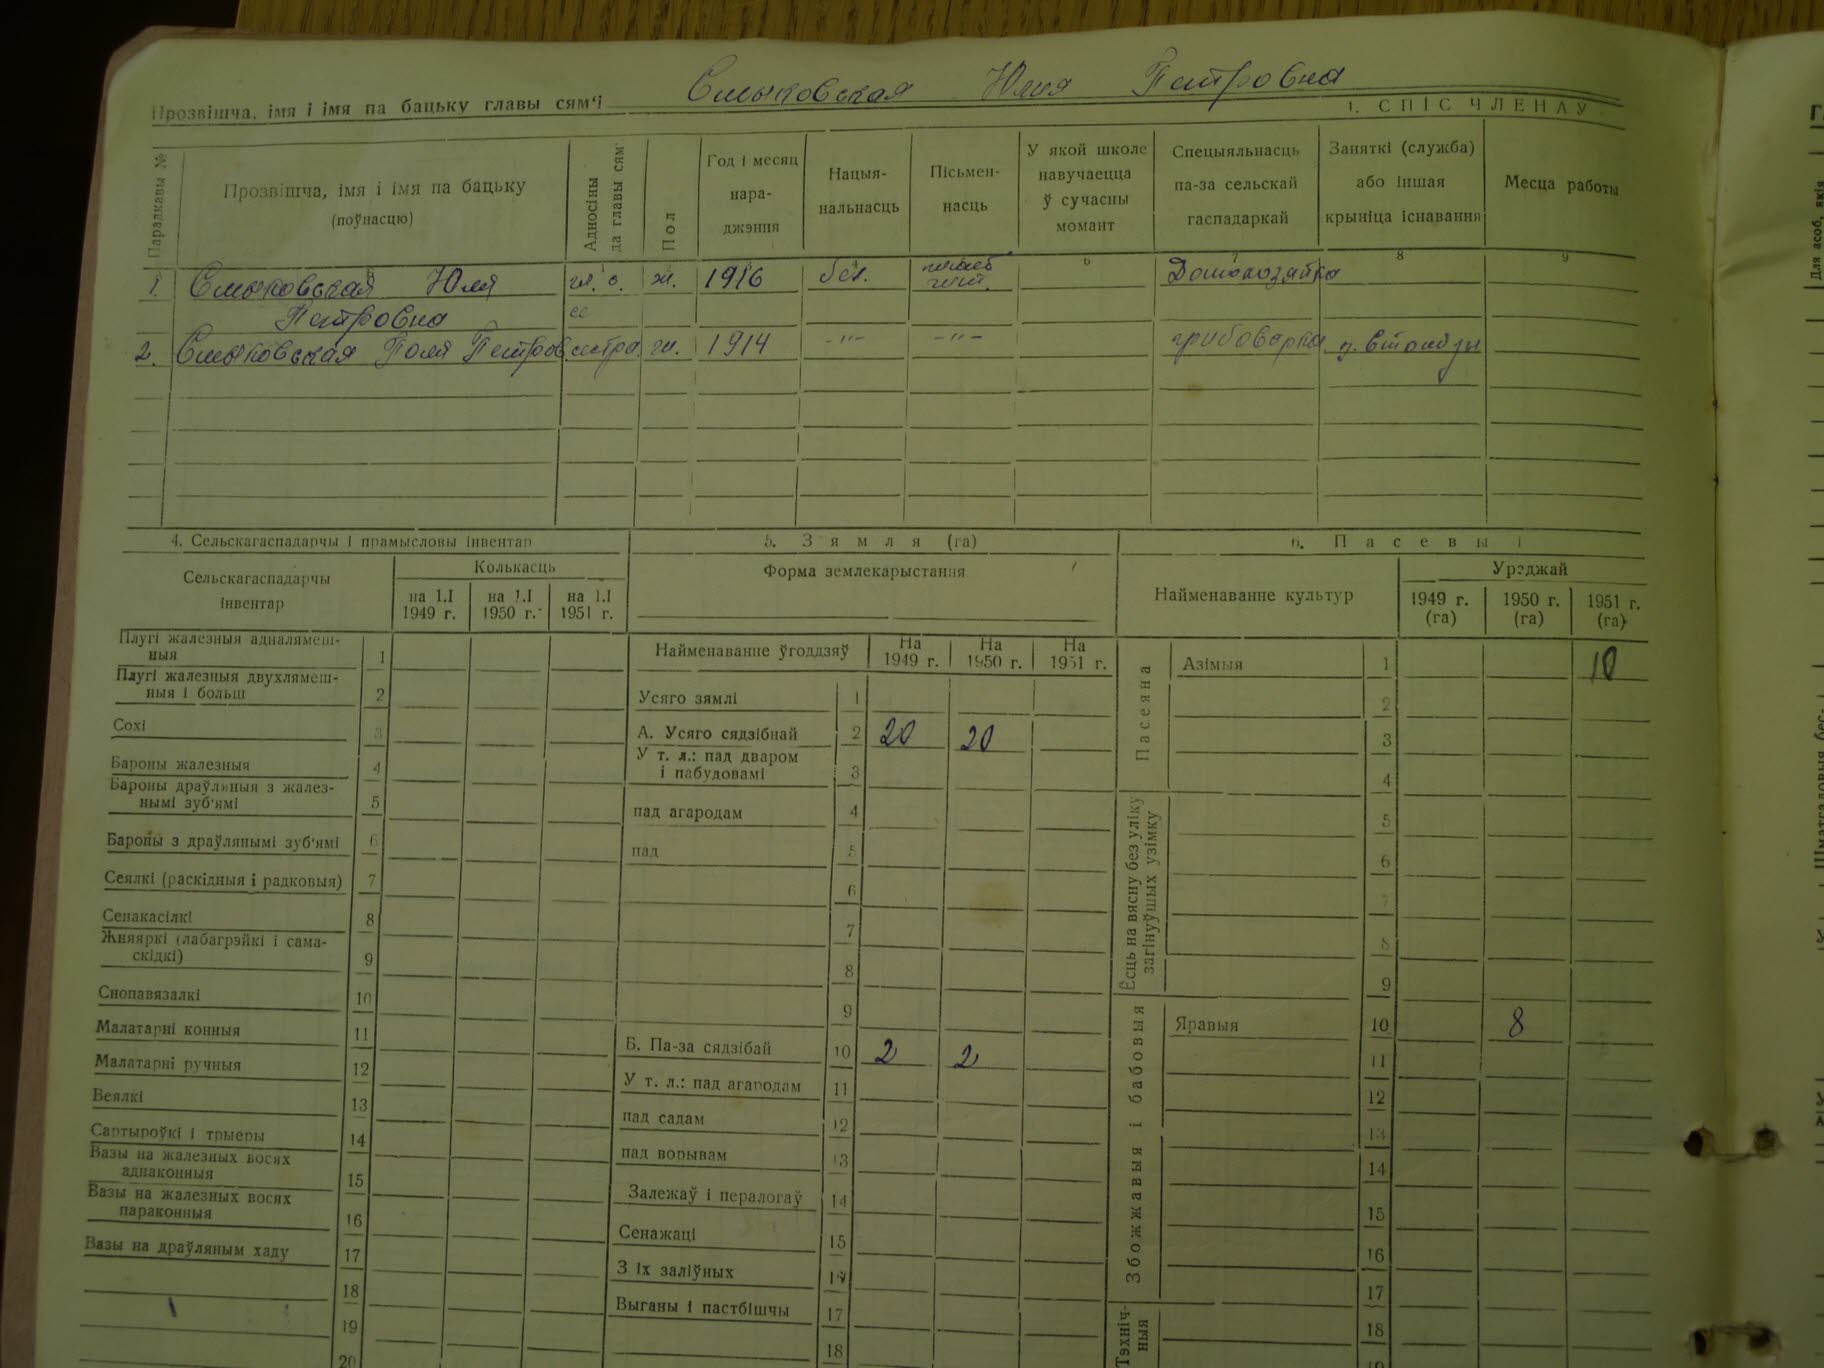 Прозвішча, імя і імя па бацьку главы сям'і Смыковская Юля Петровна
1. СПІС ЧЛЕНАЎ
Парадкавы №
Прозвішча, імя і імя па бацьку (поўнасцю)
Адносіны да главы сям'
Пол
Год і месяц нараджэння
Нацыянальнасць
Пісьменнасць
У якой школе навучаецца ў сучасны момант
Спецыяльнасць па-за сельскай гаспадаркай
Заняткі (служба) або іншая крыніца існавання
Месца работы
6 7 8 9
1. Смыковская Юля гл. с. ж. 1916 бел. Домохозяйка
Петровна
2. Смыковская Поля Петров сестра ж. 1914 -"- -"- грибоварка
4. Сельскагаспадарчы і прамысловы інвентар
Сельскагаспадарчы інвентар
Колькасць
на 1.I 1949 г. на 1.I 1950 г. на 1.I 1951 г.
Плугі жалезныя адналямешныя 1
Плугі жалезныя двухлямешныя і больш 2
Сохі 3
Бароны жалезныя 4
Бароны драўляныя з жалезнымі зуб'ямі 5
Бароны з драўлянымі зуб'ямі 6
Сеялкі (раскідныя і радковыя) 7
Сенакасілкі 8
Жняяркі (лабагрэйкі і самаскідкі) 9
Снопавязалкі 10
Малатарні конныя 11
Малатарні ручныя 12
Веялкі 13
Сартыроўкі і трыеры 14
Вазы на жалезных восях аднаконныя 15
Вазы на жалезных восях параконныя 16
Вазы на драўляным хаду 17
18
19
20
5. Зямля (га)
Форма землекарыстання
Найменаванне ўгоддзяў На 1949 г. На 1950 г. На 1951 г.
Усяго зямлі 1
А. Усяго сядзібнай 2 20 20
У т. л.: пад дваром і пабудовамі 3
пад агародам 4
пад 5
6
7
8
9
Б. Па-за сядзібай 10 2 2
У т. л.: пад агародам 11
пад садам 12
пад ворывам 13
Залежаў і пералогаў 14
Сенажаці 15
З іх заліўных 16
Выганы і пастбішчы 17
18
6. Пасевы і
Найменаванне культур
Ураджай
1949 г. (га) 1950 г. (га) 1951 г. (га)
Пасеяна
Азімыя 1 10
2
3
4
Ёсць на вясну без уліку загінуўшых узімку
5
6
7
8
9
Збожжавыя і бабовыя
Яравыя 10 8
11
12
13
14
15
16
17
Тэхнічныя
18
Для асоб, якія